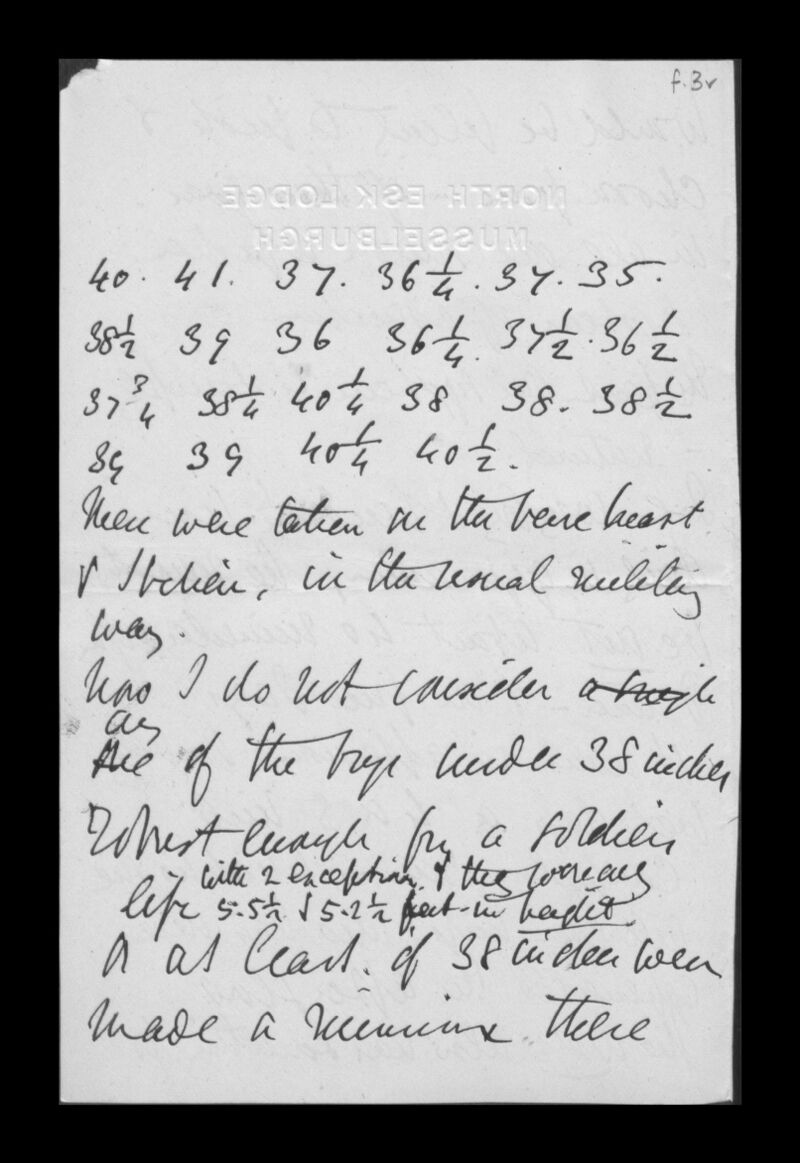 f.3v
NORTH ESK LODGE
MUSSELBURGH
40. 41. 37. 36 1/4. 37. 35.
38 1/2 39 36 36 1/4. 37 1/2. 36 1/2
37 3/4 38 1/4 40 1/4 38 38. 38 1/2
39 39 40 1/4 40 1/2.
These were taken on the bare breast
in the usual military
way.
Now I do not consider a single
any
one of the boys under 38 inches
robust enough for a soldiers
with 2 exceptions & they
life 5.5 1/2 & 5.2 1/2 feet in height
or at least. if 38 inches were
made a minimum there